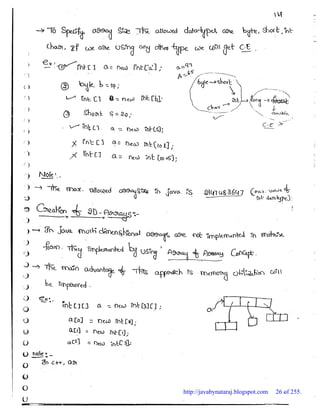 141
→ To Specify array Size The allowed datatypes are byte, short, int
char, If we are using any other type we will get C.E.
Ex:- ① int[] a = new int['a']; a=97
A=65
② byte b = 10;
int[] a = new int[b];
byte→short
char
int → long → float
double
③ Short s = 20;
int[] a = new int[s];
C.E X
X int[] a = new int[10L];
X int[] a = new int[10.5];
Note:-
→ The max. allowed arraysize in java is 2147483647 (max. value of
int datatype).
Creation of 2D-Arrays:-
→ In Java multidimensional arrays are not implemented in matrix
form. They implemented by using Array of Arrays Concept.
→ The main advantage of This approach is memory utilization will
be improved.
Ex:- int[][] a = new int[3][];
a[0] = new int[2];
a[1] = new int[1];
a[2] = new int[3];
a
Note:-
In C++, an
http://javabynataraj.blogspot.com 26 of 255.